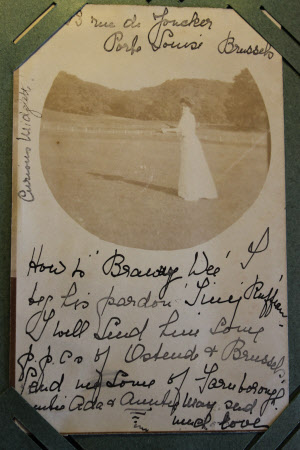 3 rue de Joncker
Porte Louise Brussels
Curious Midget!
How is 'Brawny Wee' I
beg his pardon 'Tiny Ruffian'
I will send him some
p.p.cs of Ostend & Brussels
send me some of Farnborough
Auntie Ada & Auntie May send
much love